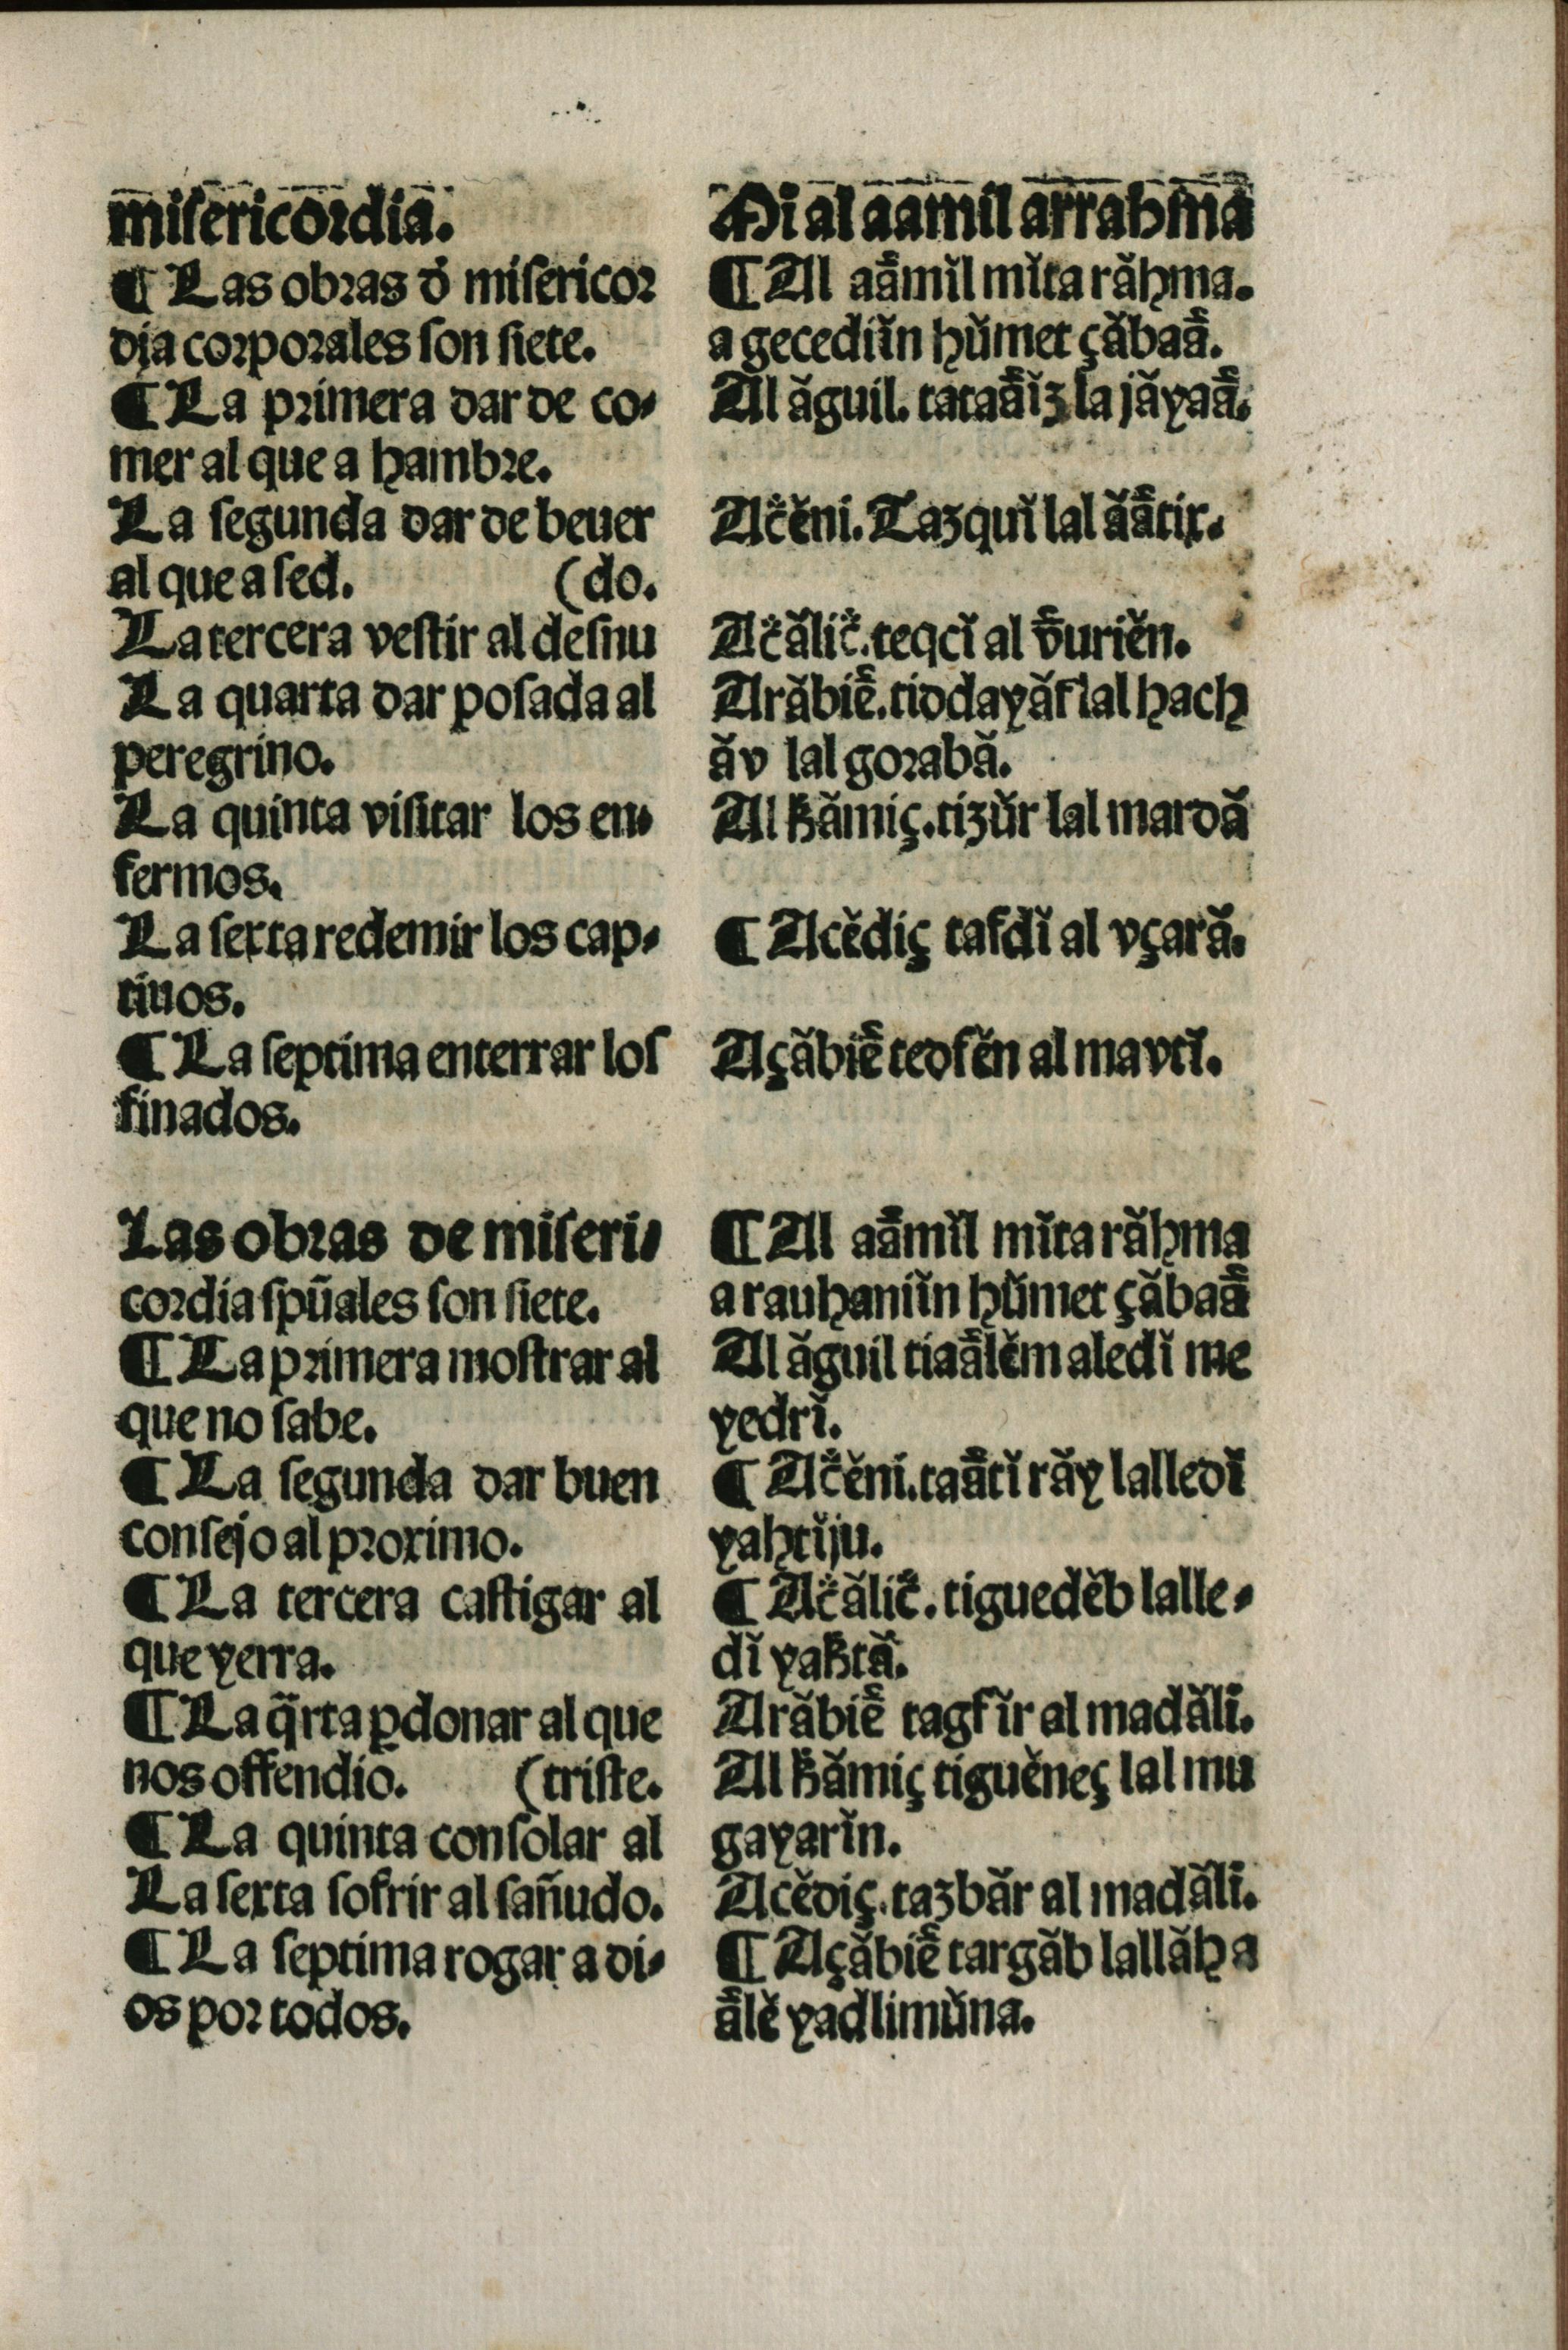 misericordia.
¶ Las obras đ misericor
dia corporales son siete.
¶ La primera dar de co-
mer al que a hambre.
La segunda dar de beuer
al que a sed. (do.
La tercera vestir al desnu
La quarta dar posada al
peregrino.
La quinta visitar los en-
fermos.
La sexta redemir los cap-
tiuos.
¶ La septima enterrar los
finados.
Las obras de miseri-
cordia spũales son siete.
¶ La primera mostrar al
que no sabe.
¶ La segunda dar buen
consejo al proximo.
¶ La tercera castigar al
que yerra.
¶ La q̃rta ꝑdonar al que
nos offendio. (triste.
¶ La quinta consolar al
La sexta sofrir al sañudo.
¶ La septima rogar a di-
os por todos.
Fi al aamil arrahma
¶ Al aa᷄mĭl mĭta răhma.
a gecediĭn hŭmet çăbaa᷄.
Al ăguil. tataa᷄ĭz la jăyaa᷄.
Ac̈ĕni. Tazquĭ lal ăa᷄tix.
Ac̈ălic̈. teqcĭ al v᷄uriĕn.
Arăbie᷄. tiddayăf lal hach
ăv lal gorabă.
Al ꝁămiç. tizŭr lal mardă
¶ Acĕdiç tafdĭ al vçară.
Açăbie᷄ tedfĕn al mavtĭ.
¶ Al aa᷄mĭl mĭta răhma
a rauhaniĭn hŭmet çăbaa᷄
Al ăguil tiaa᷄lĕm aledĭ me
yedrĭ.
¶ Ac̈ĕni. taa᷄tĭ răy lalledĭ
yahtĭju.
¶ Ac̈ălic̈. tiguedĕb lalle-
dĭ yaꝁtă.
Arăbie᷄ tagfĭr al madălĭ.
Al ꝁămiç tiguĕneç lal mu
gayarĭn.
Acĕdiç. tazbăr al madălĭ.
¶ Açăbie᷄ targăb lallăh a
a᷄lĕ yadlimŭna.